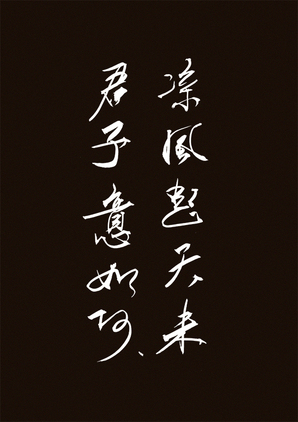 凉風起天末
君子意如何